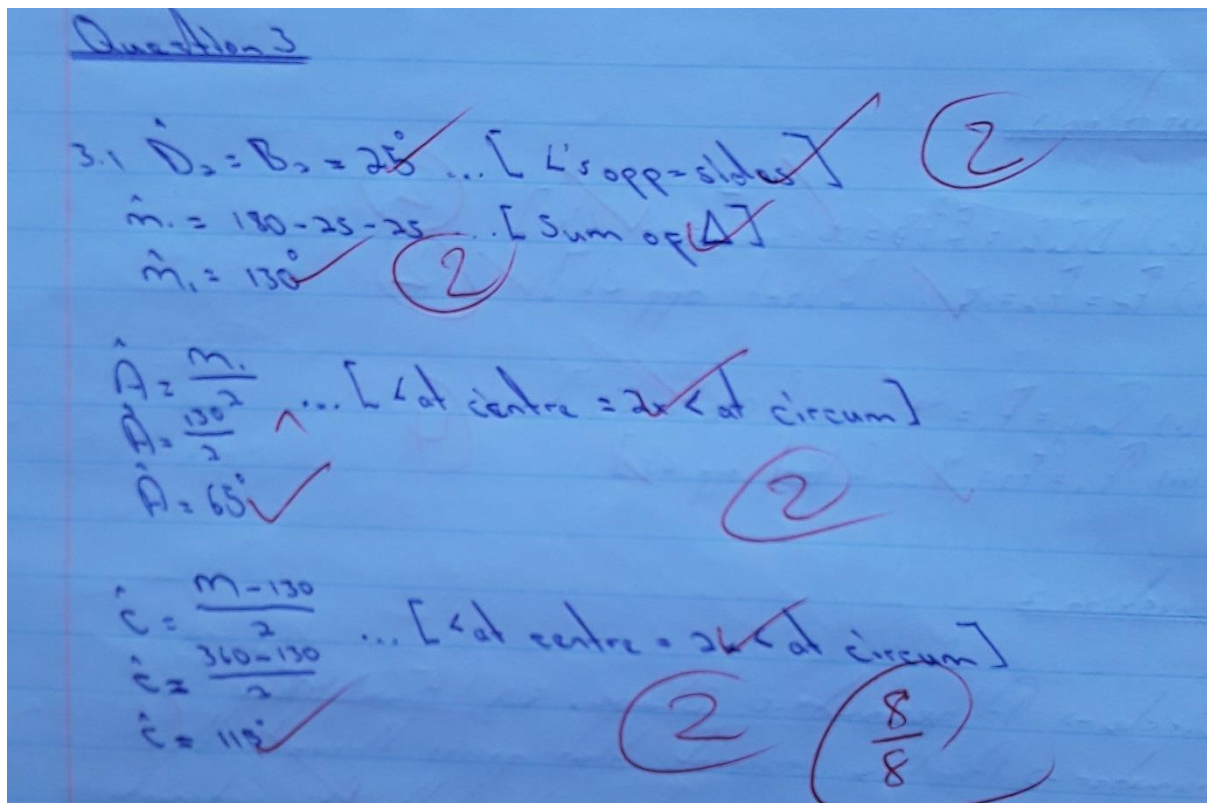 Question 3
3.1 D̂₂ = B₂ = 25° ... [∠'s opp = sides] 2
m̂₁ = 180 - 25 - 25 ... [Sum of Δ]
m̂₁ = 130° 2
Â = m₁/2 ... [< at centre = 2x < at circum]
Â = 130/2 ^
Â = 65° 2
ĉ = m - 130/2 ... [< at centre = 2x < at circum]
ĉ = 360 - 130/2
ĉ = 115° 2 8/8